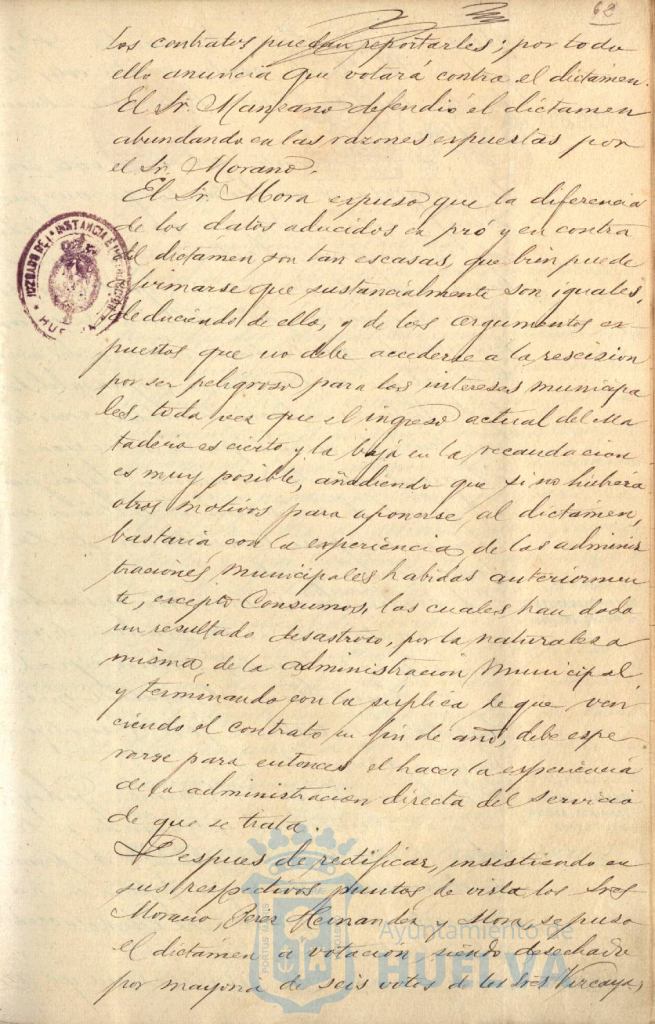 68
los contratos puedan reportarles; por todo
ello anuncia que votará contra el dictámen.
El Sr. Manzano defendió el dictamen
abundando en las razones expuestas por
el Sr. Morano.
El Sr. Mora expuso que la diferencia
de los datos aducidos en pró y en contra
del dictámen son tan escasas, que bien puede
afirmarse que sustancialmente son iguales,
deduciendo de ello, y de los argumentos ex-
puestos que no debe accederse a la rescision
por ser peligroso para los intereses municipa
les, toda vez que el ingreso actual del Ma
tadero es cierto y la baja en la recaudacion
es muy posible, añadiendo que si no hubiera
otros motivos para oponerse al dictamen,
bastaria con la experiencia de las adminis
traciones municipales habidas anteriormen
te, excepto Consumos, las cuales han dado
un resultado desastroso, por la naturaleza
misma de la administracion Municipal
y terminando con la súplica de que ven
ciendo el contrato en fin de año, debe espe
rarse para entonces el hacer la experiencia
de la administracion directa del servicio
de que se trata.
Despues de rectificar, insistiendo en
sus respectivos puntos de vista los Sres
Morano, Perez Hernandez y Mora, se puso
el dictamen a votación siendo desechado
por mayoria de seis votos de los Sres Vizcaya,
JUZGADO DE 1ª INSTANCIA E
HUE
Ayuntamiento de
HUELVA